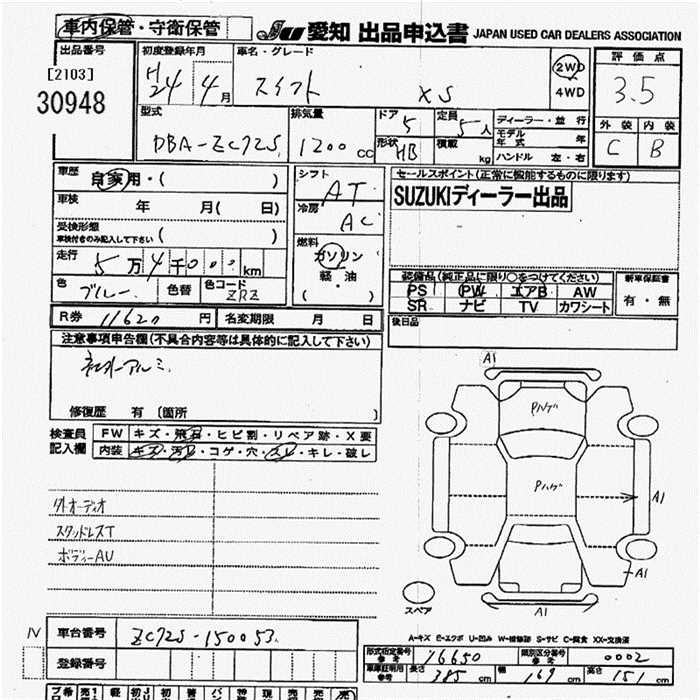 車内保管・守衛保管
JU 愛知 出品申込書 JAPAN USED CAR DEALERS ASSOCIATION
出品番号
[2103]
30948
初度登録年月
H24 4月
車名・グレード
スイフト XS
2WD
4WD
評価点
3.5
外装 内装
C B
型式
DBA-ZC72S
排気量
1200 cc
ドア
5
形状
HB
定員
5人
積載 kg
ディーラー・並行
モデル年式 年
ハンドル 左・右
車歴
自家用・( )
車検
年 月( 日)
受検形態
車検付きのみ記入して下さい ( )
走行
5万4千000km
色
ブルー
色替
色コード
ZRZ
シフト
AT
冷房
AC
燃料
ガソリン
軽・油
( )
セールスポイント(正常に機能するものに限ります)
SUZUKIディーラー出品
装備品(純正品に限り○をつけてください)
PS PW エアB AW
SR ナビ TV カワシート
新車保証書
有・無
後日品
R券 11620 円
名変期限 月 日
注意事項申告欄(不具合内容等は具体的に記入して下さい)
社外アルミ
修復歴 有 〔箇所 〕
検査員記入欄
FW キズ・飛石・ヒビ割・リペア跡・X要
内装 キズ・汚れ・コゲ・穴・スレ・キレ・破レ
外オーディオ
スタッドレスT
ボディーAU
A1
Pハゲ
Pハゲ
A1
A1
A1
スペア
A=キズ E=エクボ U=凹み W=補修跡 S=サビ C=腐食 XX=交換済
IV
車台番号
ZC72S-150053
登録番号
型式指定番号
参考
16650
類別区分番号
参考
0002
車庫証明用
参考
長さ 385 cm
幅 169 cm
高さ 151 cm